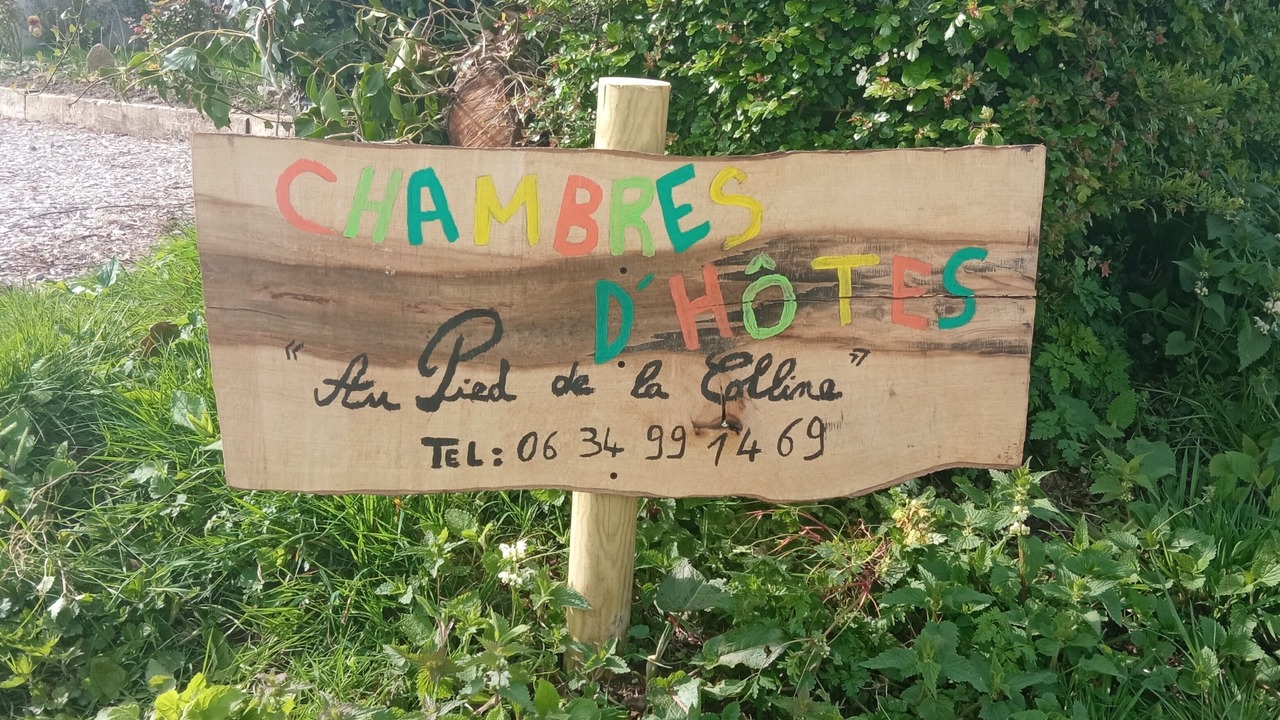 CHAMBRES
D'HÔTES
"Au Pied de la Colline"
TEL: 06 34 99 14 69